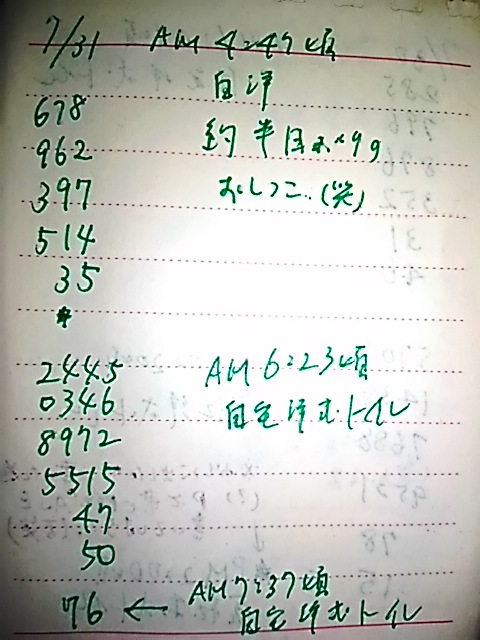 7/31 AM 4:47頃
自洋
678
962 約半目ホベ99
397 おしっこ..(笑)
514
35
*
2445 AM 6:23頃
0346 自宅洋式トイレ
8972
5515
47
50
76 ← AM 7:37頃
自宅洋式トイレ